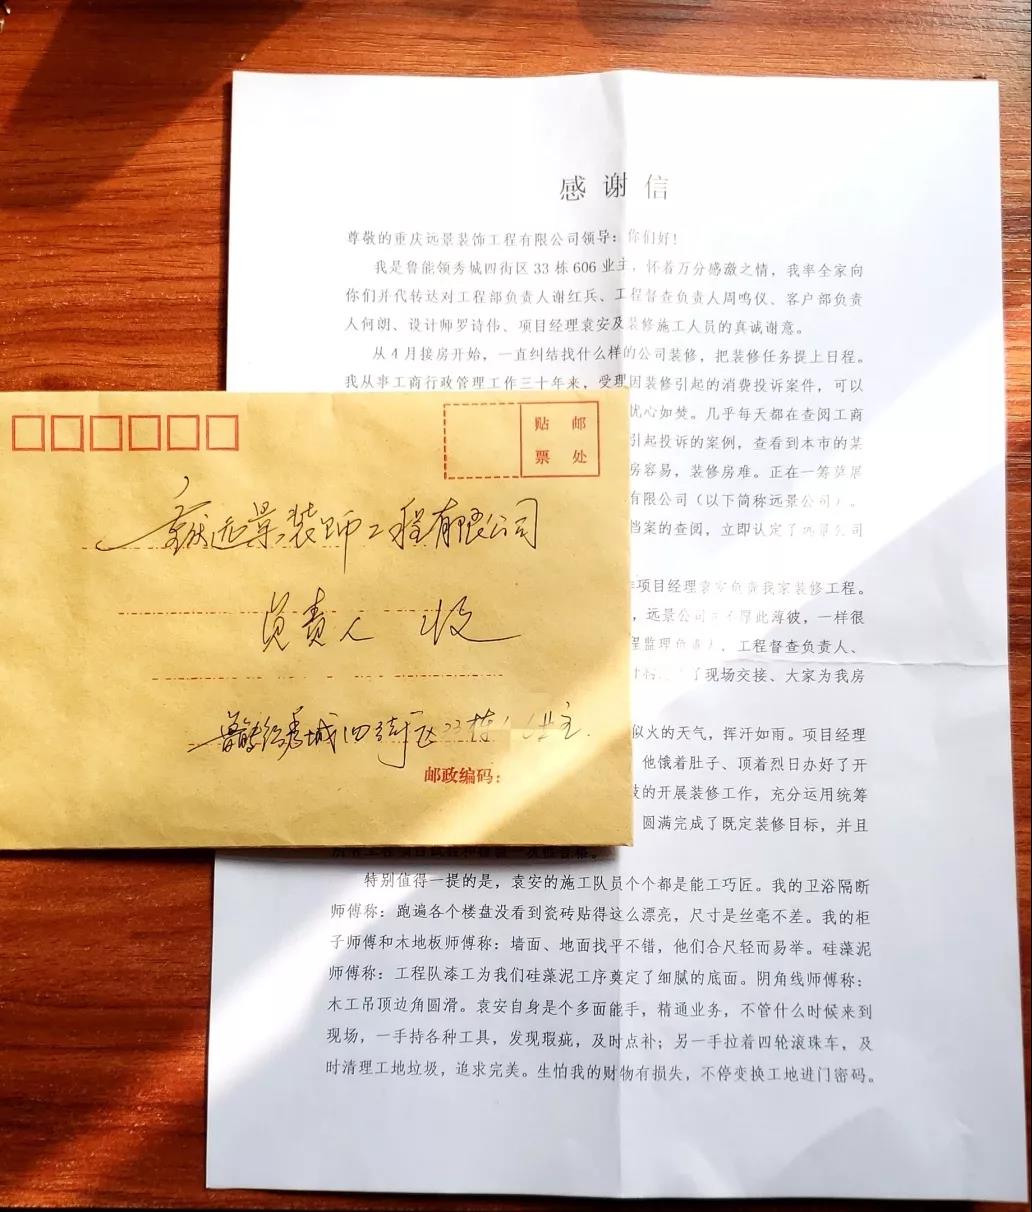 感谢信
尊敬的重庆远景装饰工程有限公司领导：你们好！
我是鲁能领秀城四街区 33 栋 606 业主，怀着万分感激之情，我率全家向
你们并代转达对工程部负责人谢红兵、工程督查负责人周鸣仪、客户部负责
人何朗、设计师罗诗伟、项目经理袁安及装修施工人员的真诚谢意。
从 4 月接房开始，一直纠结找什么样的公司装修，把装修任务提上日程。
我从事工商行政管理工作三十年来，受理因装修引起的消费投诉案件，可以
忧心如焚。几乎每天都在查阅工商
引起投诉的案例，查看到本市的某
房容易，装修房难。正在一筹莫展
有限公司（以下简称远景公司）。
档案的查阅，立即认定了远景公司
项目经理袁安负责我家装修工程。
，远景公司并不厚此薄彼，一样很
程监理负责人，工程督查负责人、
了现场交接、大家为我房
似火的天气，挥汗如雨。项目经理
他饿着肚子、顶着烈日办好了开
的开展装修工作，充分运用统筹
圆满完成了既定装修目标，并且
特别值得一提的是，袁安的施工队员个个都是能工巧匠。我的卫浴隔断
师傅称：跑遍各个楼盘没看到瓷砖贴得这么漂亮，尺寸是丝毫不差。我的柜
子师傅和木地板师傅称：墙面、地面找平不错，他们合尺轻而易举。硅藻泥
师傅称：工程队漆工为我们硅藻泥工序奠定了细腻的底面。阴角线师傅称：
木工吊顶边角圆滑。袁安自身是个多面能手，精通业务，不管什么时候来到
现场，一手持各种工具，发现瑕疵，及时点补；另一手拉着四轮滚珠车，及
时清理工地垃圾，追求完美。生怕我的财物有损失，不停变换工地进门密码。
贴 邮
票 处
重庆远景装饰工程有限公司
负责人 收
鲁能领秀城四街区33栋 业主
邮政编码：